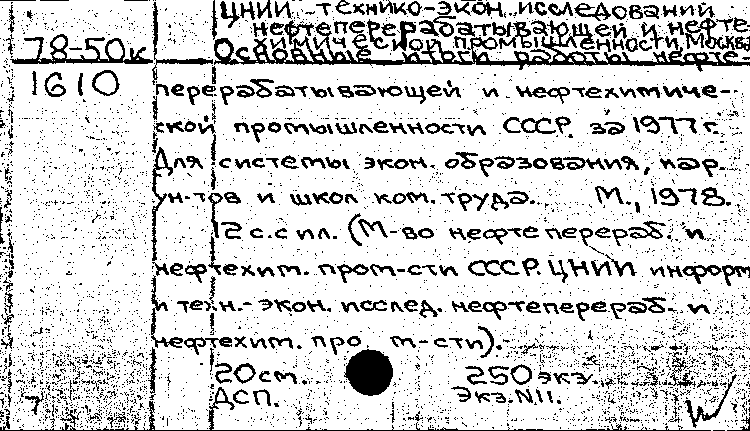 ЦНИИ технико-экон. исследований
нефтеперерабатывающей и нефте-
химической промышленности, Москва
78-50к Основные итоги работы нефте-
1610 перерабатывающей и нефтехимиче-
ской промышленности СССР. за 1977 г.
Для системы экон. образования, нар.
ун-тов и школ ком. труда. М., 1978.
12 с. с ил. (М-во нефтеперераб. и
нефтехим. пром-сти СССР. ЦНИИ информ
и техн.-экон. исслед. нефтеперераб. и
нефтехим. про м-сти).
20 см. 250 экз.
7 ДСП. Экз. N11.